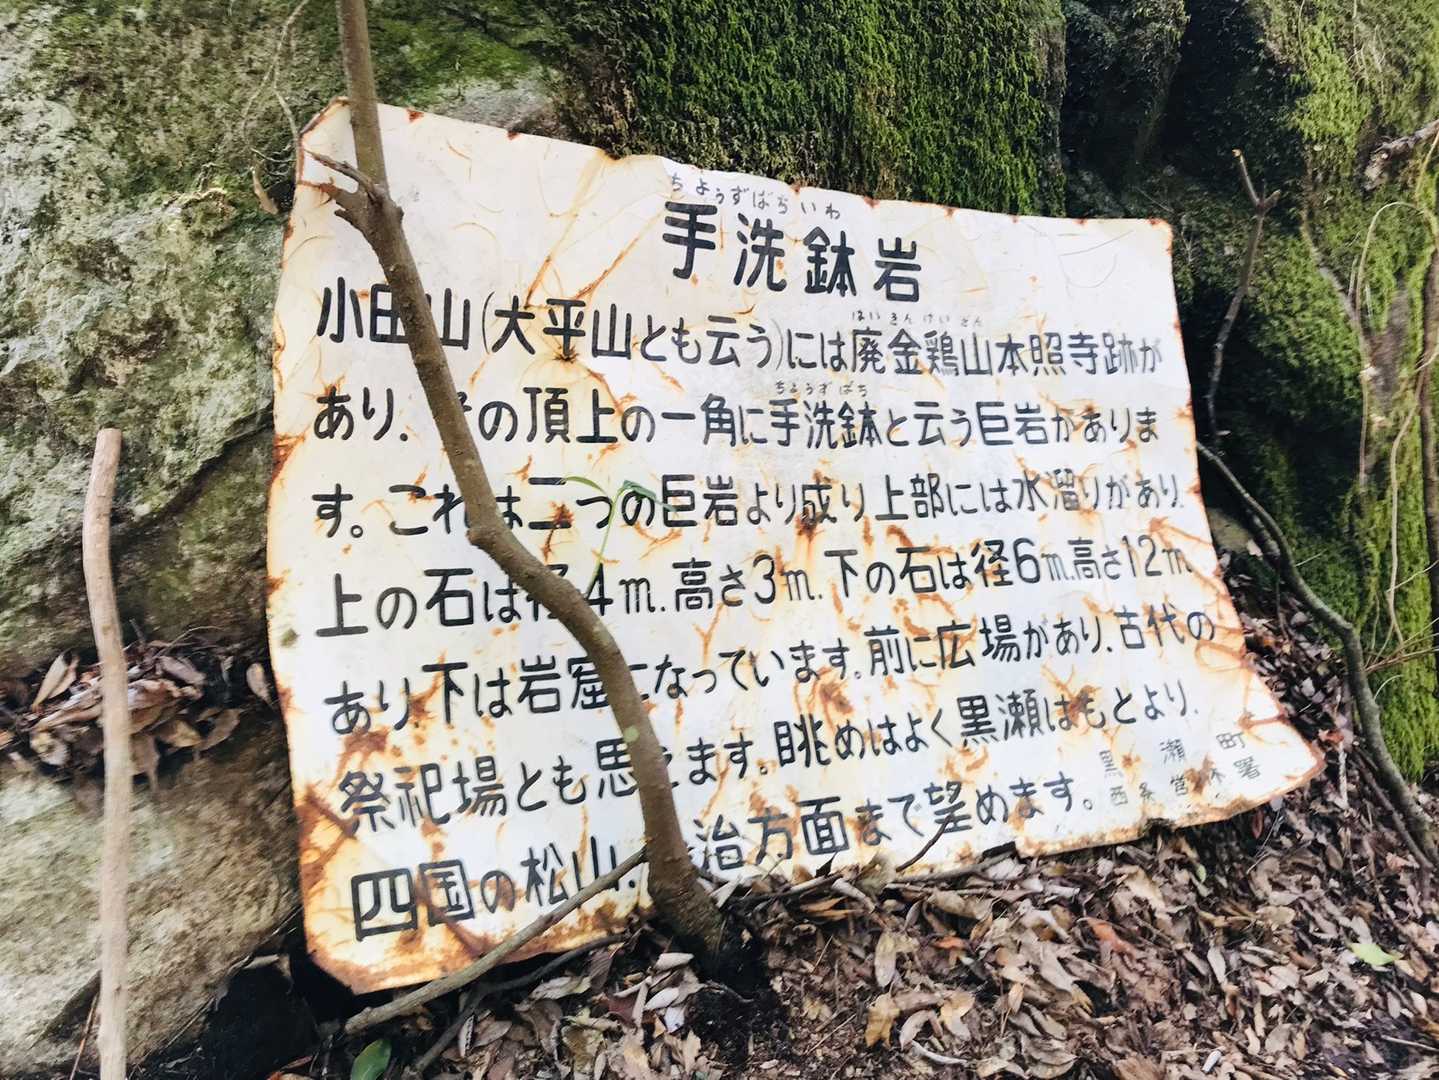 ちょうずばちいわ
手洗鉢岩
小田山(大平山とも云う)には廃金鶏山本照寺跡が
はいきんけいざん
あり.その頂上の一角に手洗鉢と云う巨岩がありま
ちょうずばち
す。これは二つの巨岩より成り上部には水溜りがあり.
上の石は径4m.高さ3m.下の石は径6m.高さ12m
あり.下は岩窟になっています.前に広場があり.古代の
祭祀場とも思えます。眺めはよく黒瀬はもとより.
四国の松山.治方面まで望めます。
黒瀬町
西条営林署